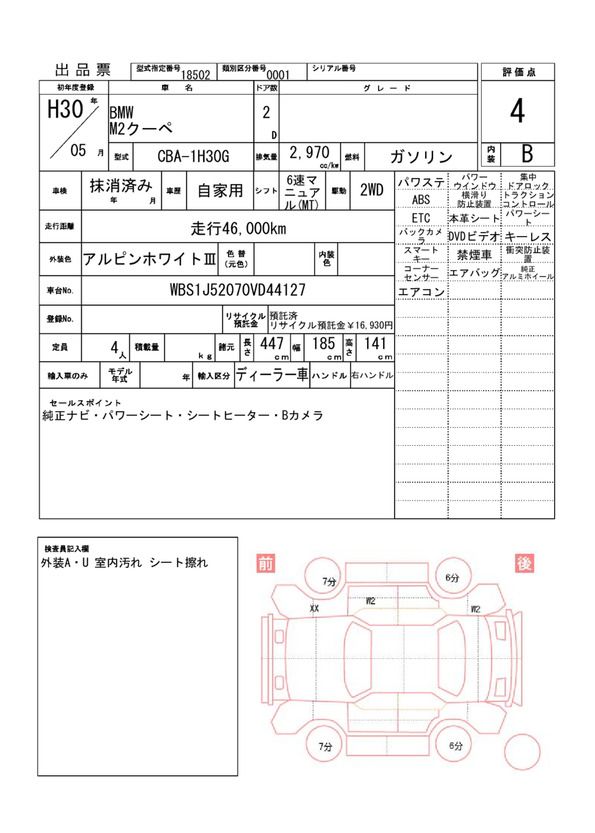 出品票
型式指定番号 18502 類別区分番号 0001 シリアル番号
評価点
初年度登録 車名 ドア数 グレード
H30年
05月
BMW
M2クーペ
2
D
4
型式 CBA-1H30G 排気量 2,970 cc/kw 燃料 ガソリン
内装 B
車検 抹消済み 年 月 車歴 自家用 シフト 6速マニュアル(MT) 駆動 2WD
走行距離 走行46,000km
外装色 アルピンホワイトⅢ 色替(元色) 内装色
車台No. WBS1J52070VD44127
登録No. リサイクル預託金 預託済
リサイクル預託金￥16,930円
定員 4人 積載量 kg 諸元 長さ 447cm 幅 185cm 高さ 141cm
輸入車のみ モデル年式 年 輸入区分 ディーラー車 ハンドル 右ハンドル
パワステ パワーウインドウ 集中ドアロック
ABS 横滑り防止装置 トラクションコントロール
ETC 本革シート パワーシート
バックカメラ DVDビデオ キーレス
スマートキー 禁煙車 衝突防止装置
コーナーセンサー エアバッグ 純正アルミホイール
エアコン
セールスポイント
純正ナビ・パワーシート・シートヒーター・Bカメラ
検査員記入欄
外装A・U 室内汚れ シート擦れ
前
後
7分
6分
XX
W2
W2
7分
6分